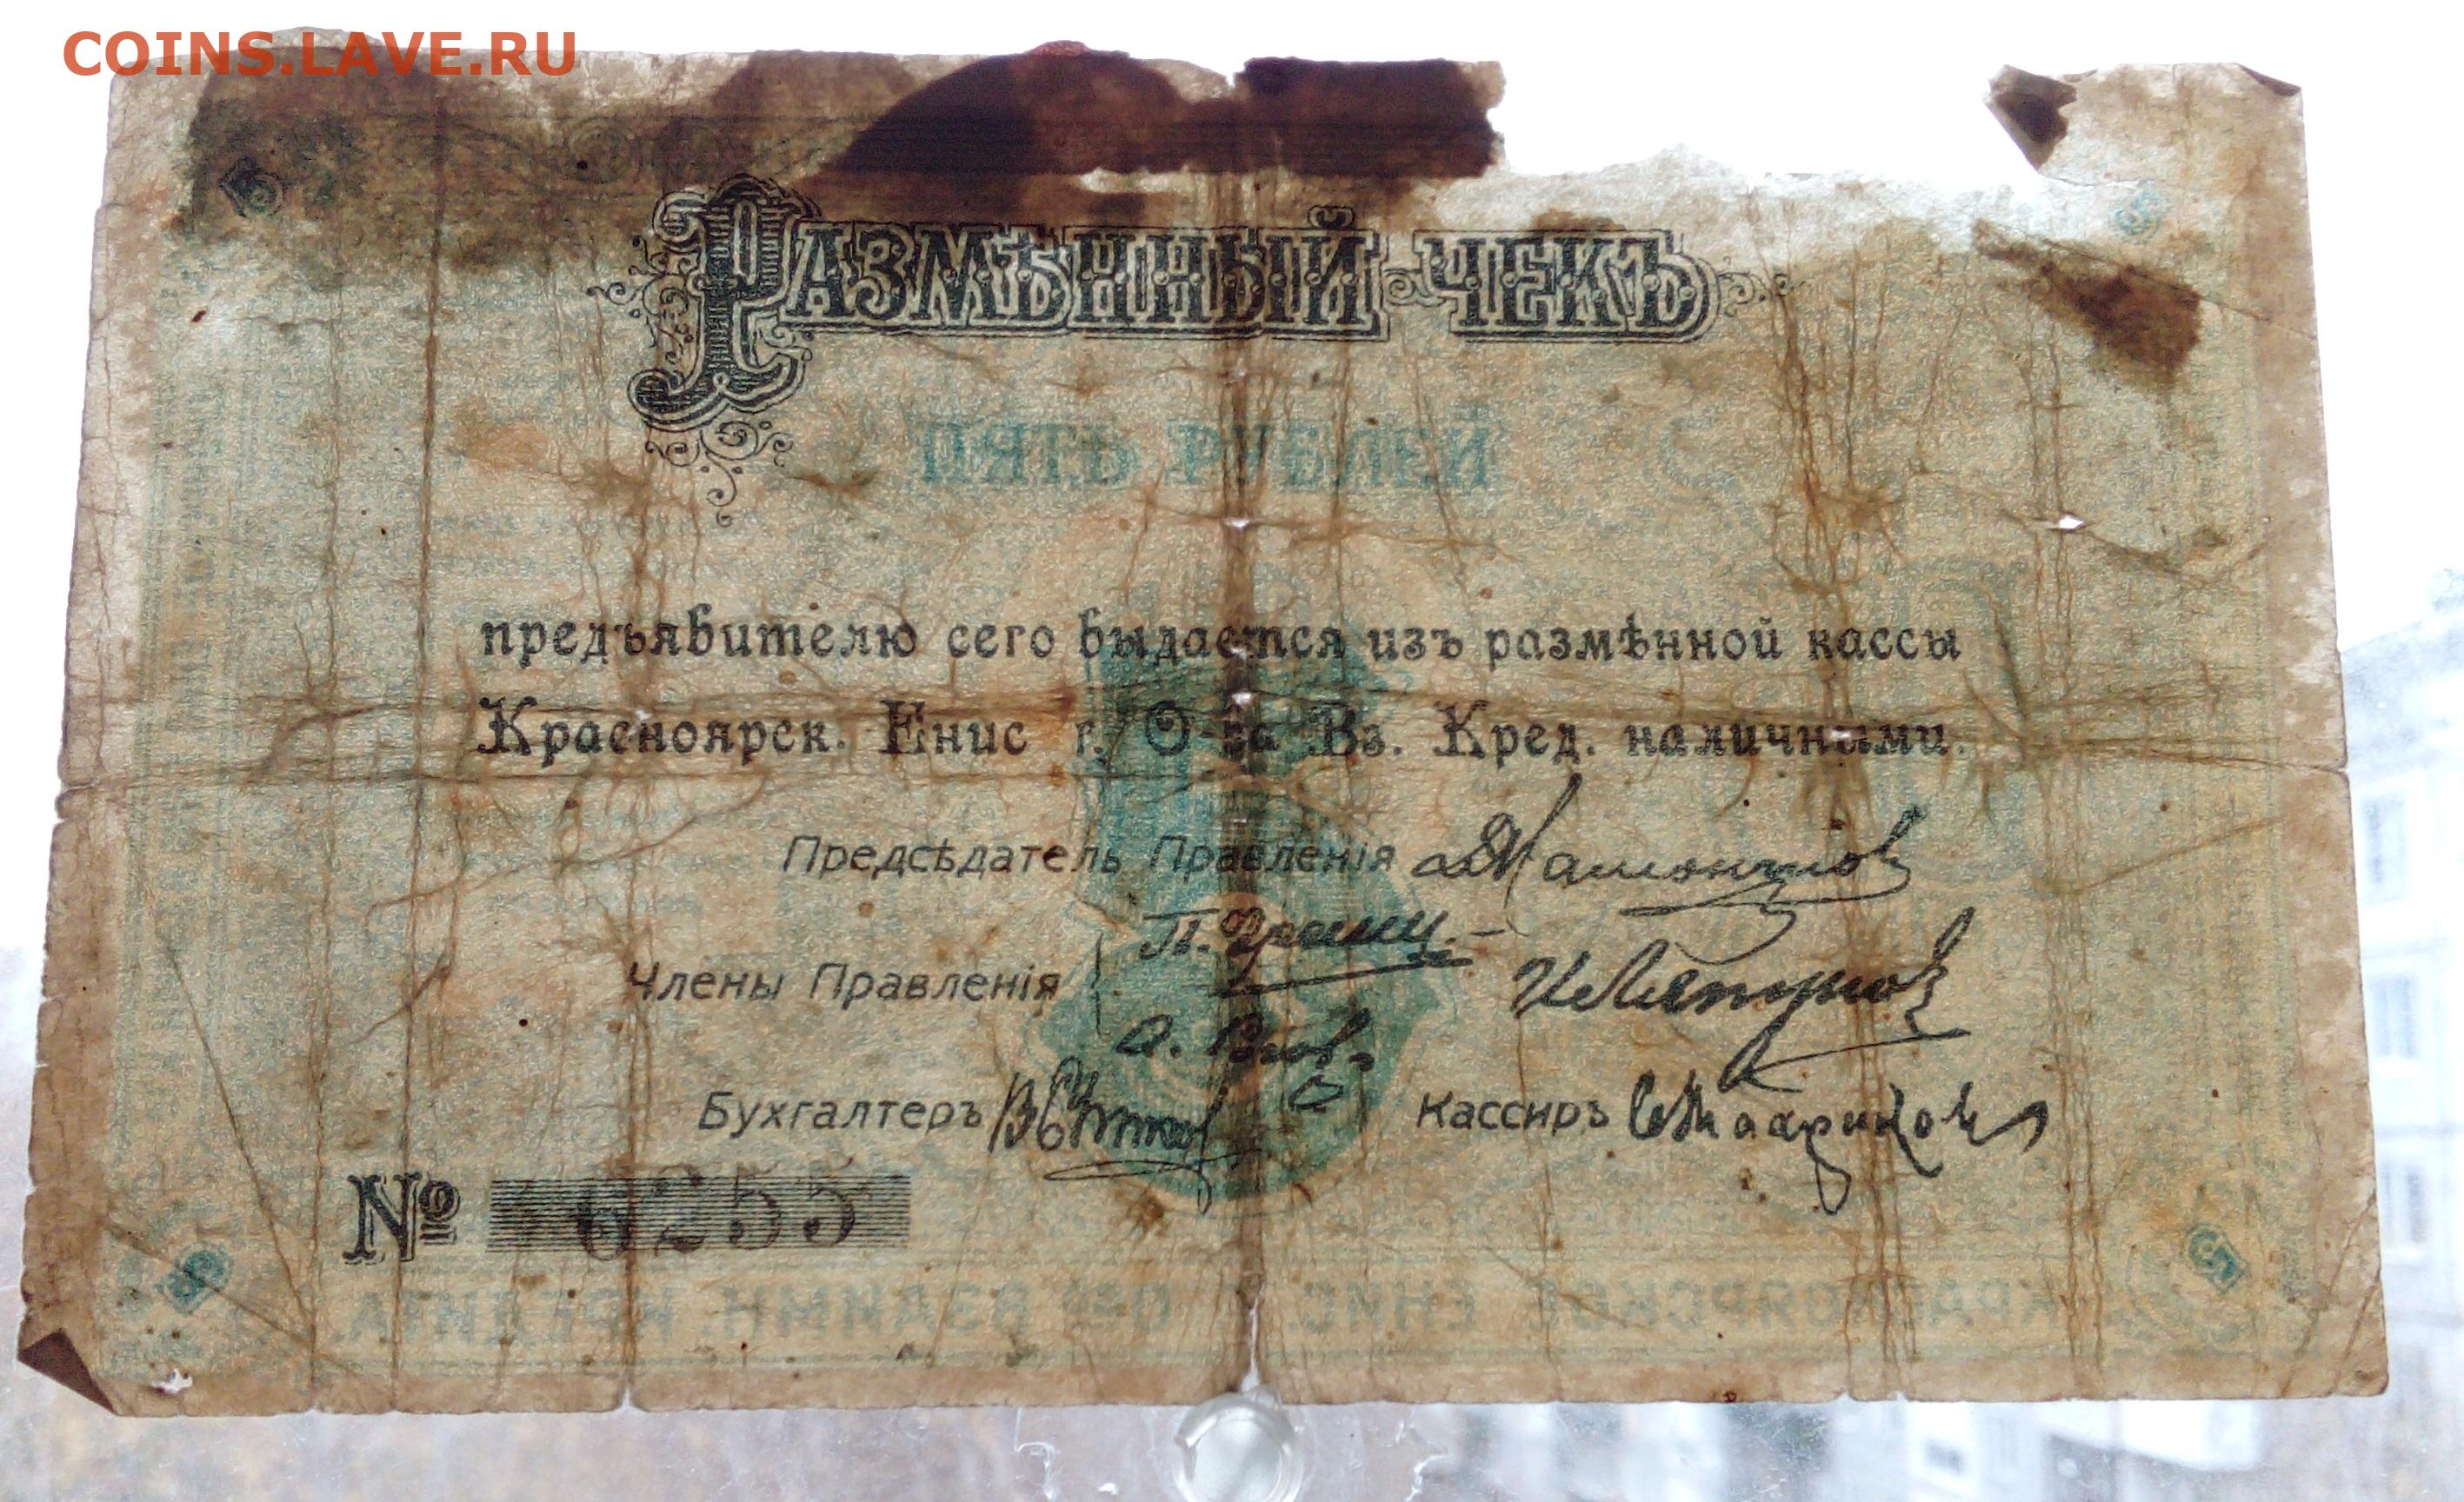 COINS.LAVE.RU
РАЗМѢННЫЙ ЧЕКЪ
ПЯТЬ РУБЛЕЙ
предъявителю сего выдается изъ размѣнной кассы
Красноярск. Енис г. О-ва Вз. Кред. наличными.
Предсѣдатель Правленія
Члены Правленія
Бухгалтеръ Кассиръ
№ 6255
КРАСНОЯРСКОЕ ЕНИС. О-во ВЗАИМН. КРЕДИТА
5 5